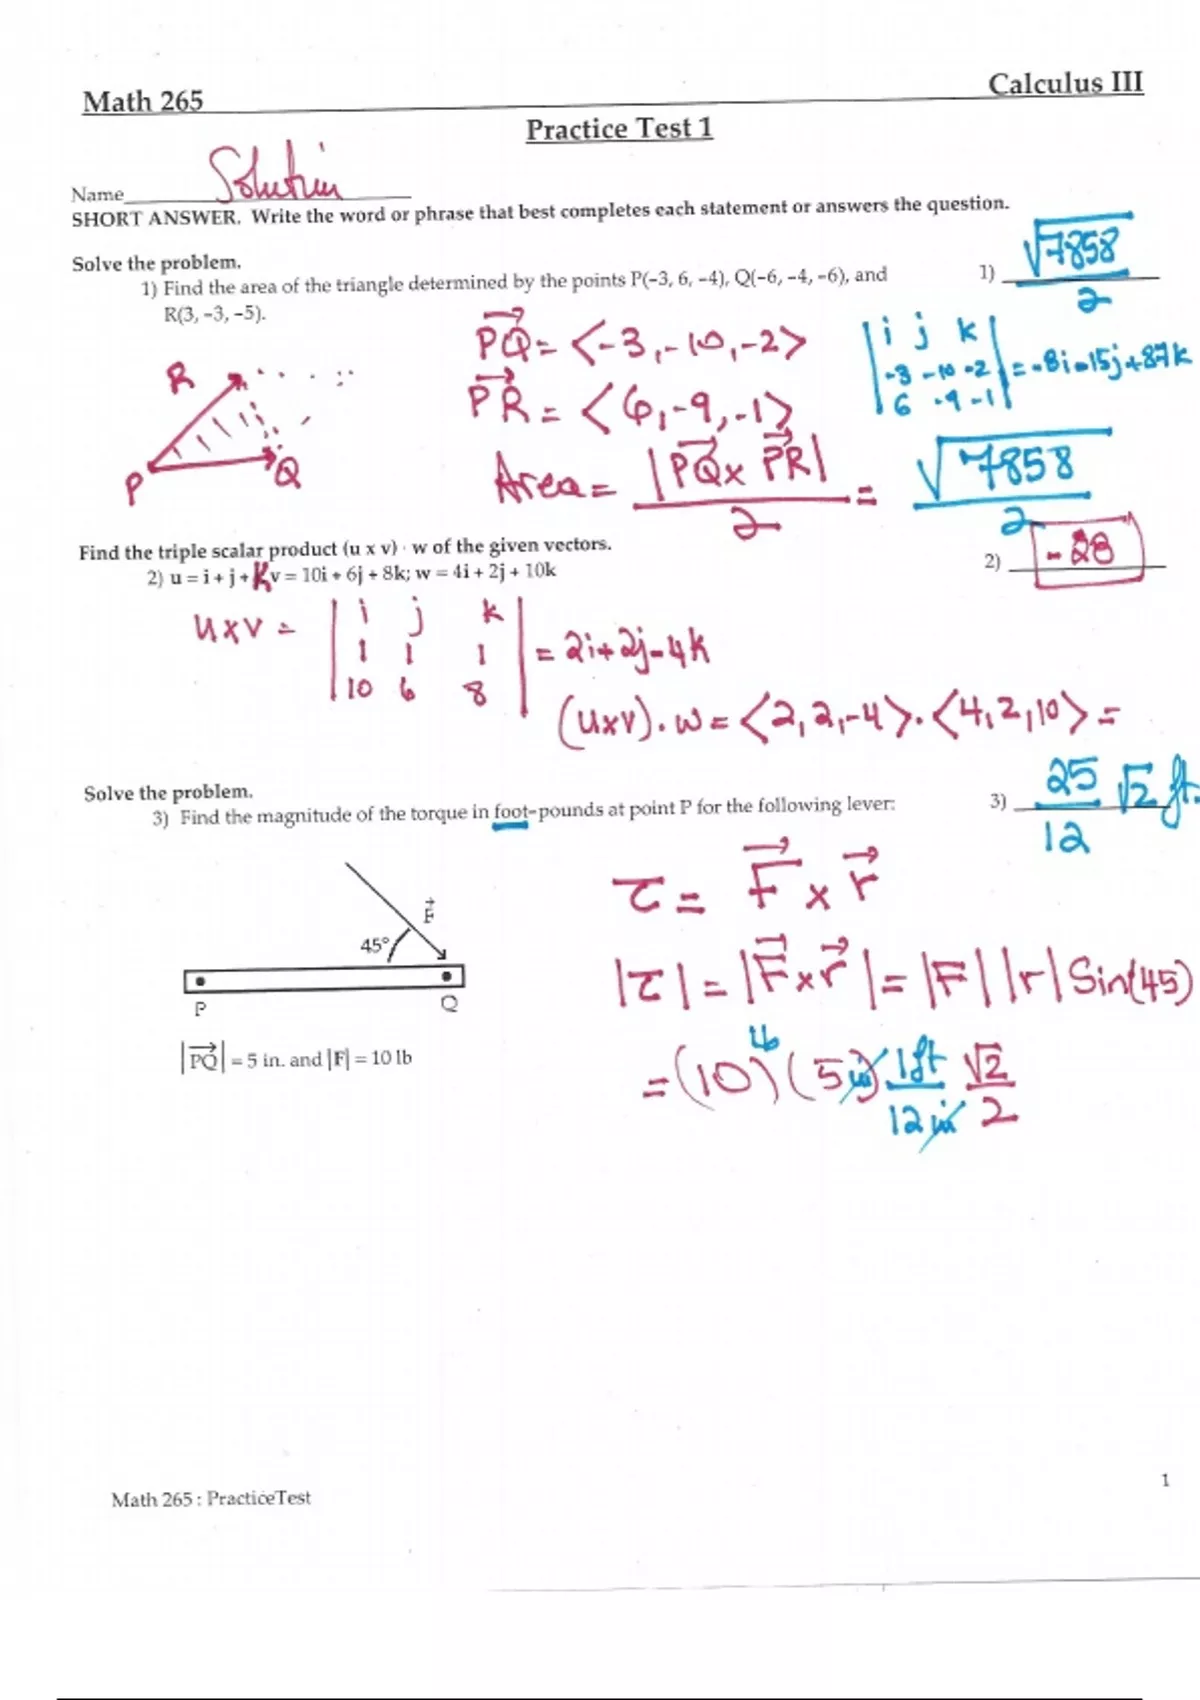 Math 265 Calculus III
Practice Test 1
Name Solution
SHORT ANSWER. Write the word or phrase that best completes each statement or answers the question.
Solve the problem.
1) Find the area of the triangle determined by the points P(-3, 6, -4), Q(-6, -4, -6), and
R(3, -3, -5).
1) √7858 / 2
PQ = <-3, -10, -2>
|i j k|
|-3 -10 -2| = -8i - 15j + 87k
|6 -9 -1|
PR = <6, -9, -1>
R
P
Q
Area = |PQ x PR| / 2 = √7858 / 2
Find the triple scalar product (u x v) · w of the given vectors.
2) u = i + j + k v = 10i + 6j + 8k; w = 4i + 2j + 10k
2) -28
u x v = | i j k |
| 1 1 1 | = 2i + 2j - 4k
| 10 6 8 |
(u x v) · w = <2, 2, -4> · <4, 2, 10> =
Solve the problem.
3) Find the magnitude of the torque in foot-pounds at point P for the following lever:
3) 25/12 √2 ft.
τ = F x r
F
45°
P Q
|τ| = |F x r| = |F| |r| Sin(45)
|PQ| = 5 in. and |F| = 10 lb
= (10) lb (5 in) 1ft / 12 in √2 / 2
Math 265 : PracticeTest
1